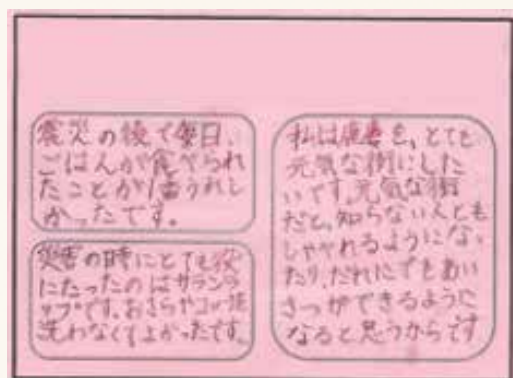 震災の後で毎日、
ごはんが食べられ
たことが1番うれし
かったです。
災害の時にとても役
にたったのはサランラ
ップです。おさらやコップを
洗わなくてよかったです。
私は鹿妻を、とても
元気な街にした
いです。元気な街
だと、知らない人とも
しゃべれるようになっ
たり、だれにでもあい
さつができるように
なると思うからです